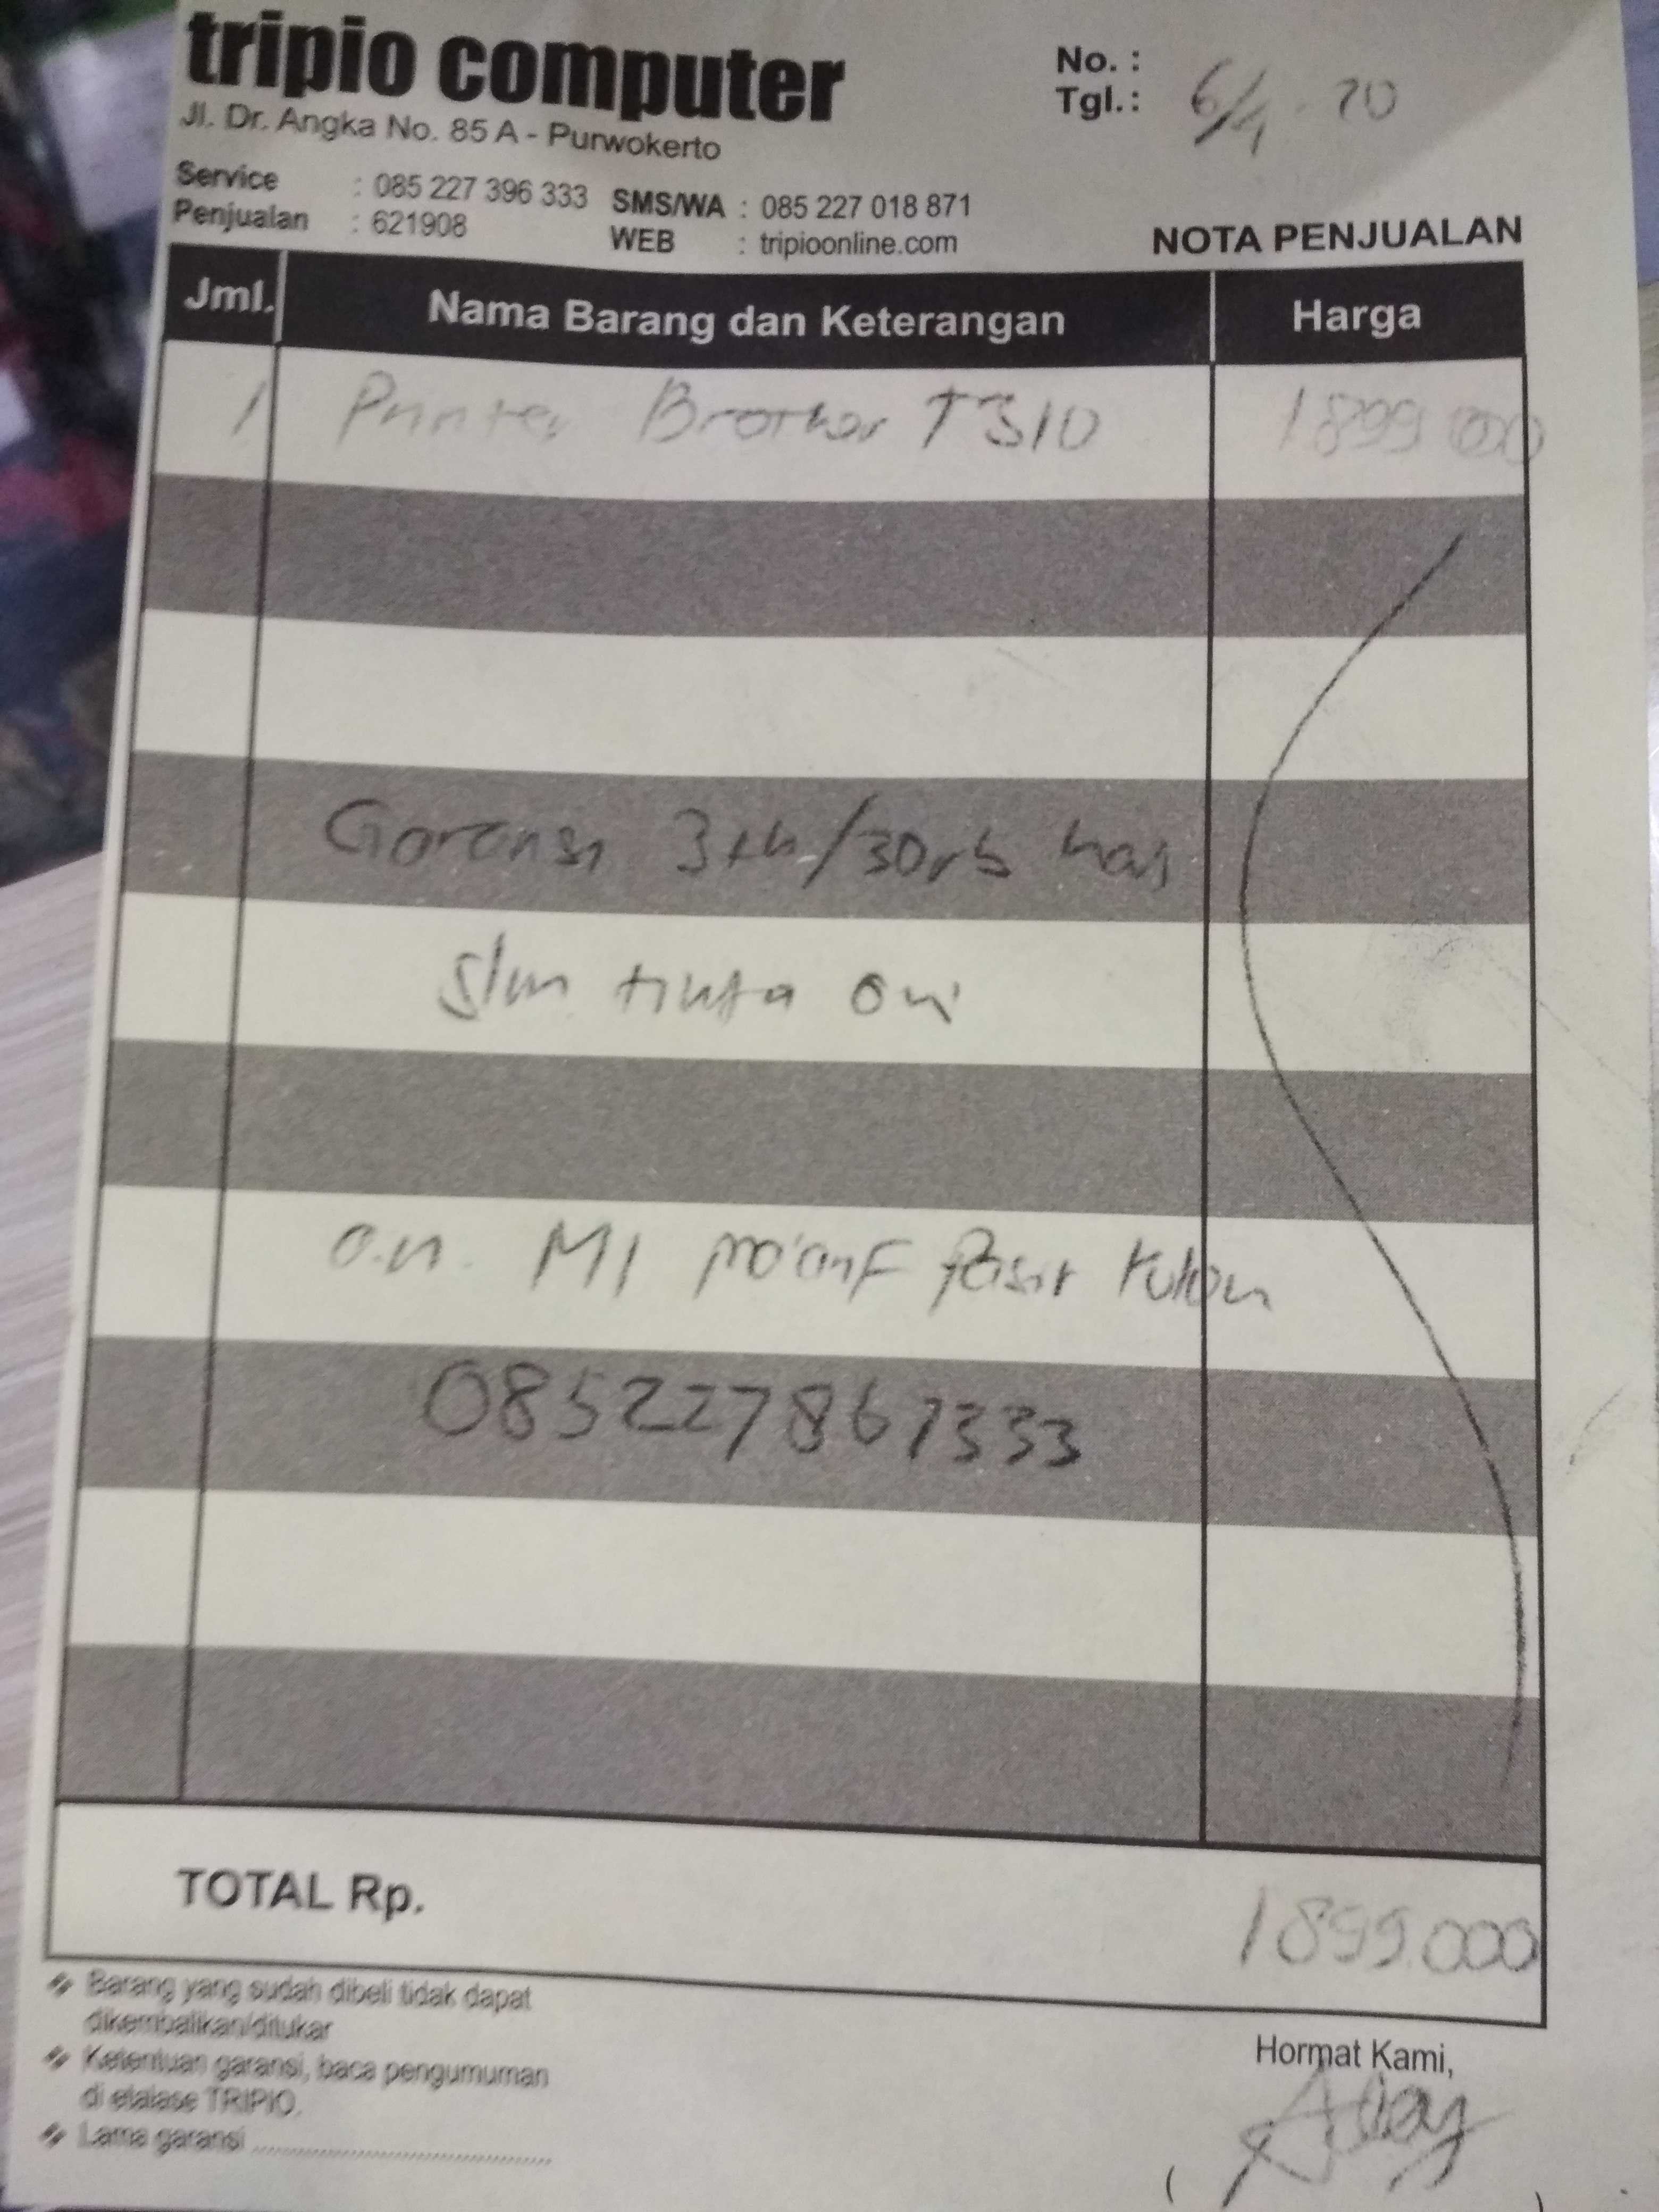 tripio computer
Jl. Dr. Angka No. 85 A - Purwokerto
No. :
Tgl.: 6/4 - 20
Service : 085 227 396 333 SMS/WA : 085 227 018 871
Penjualan : 621908 WEB : tripioonline.com
NOTA PENJUALAN
Jml. Nama Barang dan Keterangan Harga
1 Printer Brother T310 1899 000
Garansi 3th/30rb hal
tinta ori
a.n. MI Ma'arif Pasir Kulon
085227867333
TOTAL Rp. 1899.000
Barang yang sudah dibeli tidak dapat
dikembalikan/ditukar
Ketentuan garansi, baca pengumuman
di etalase TRIPIO.
Lama garansi ..............................
Hormat Kami,
( )